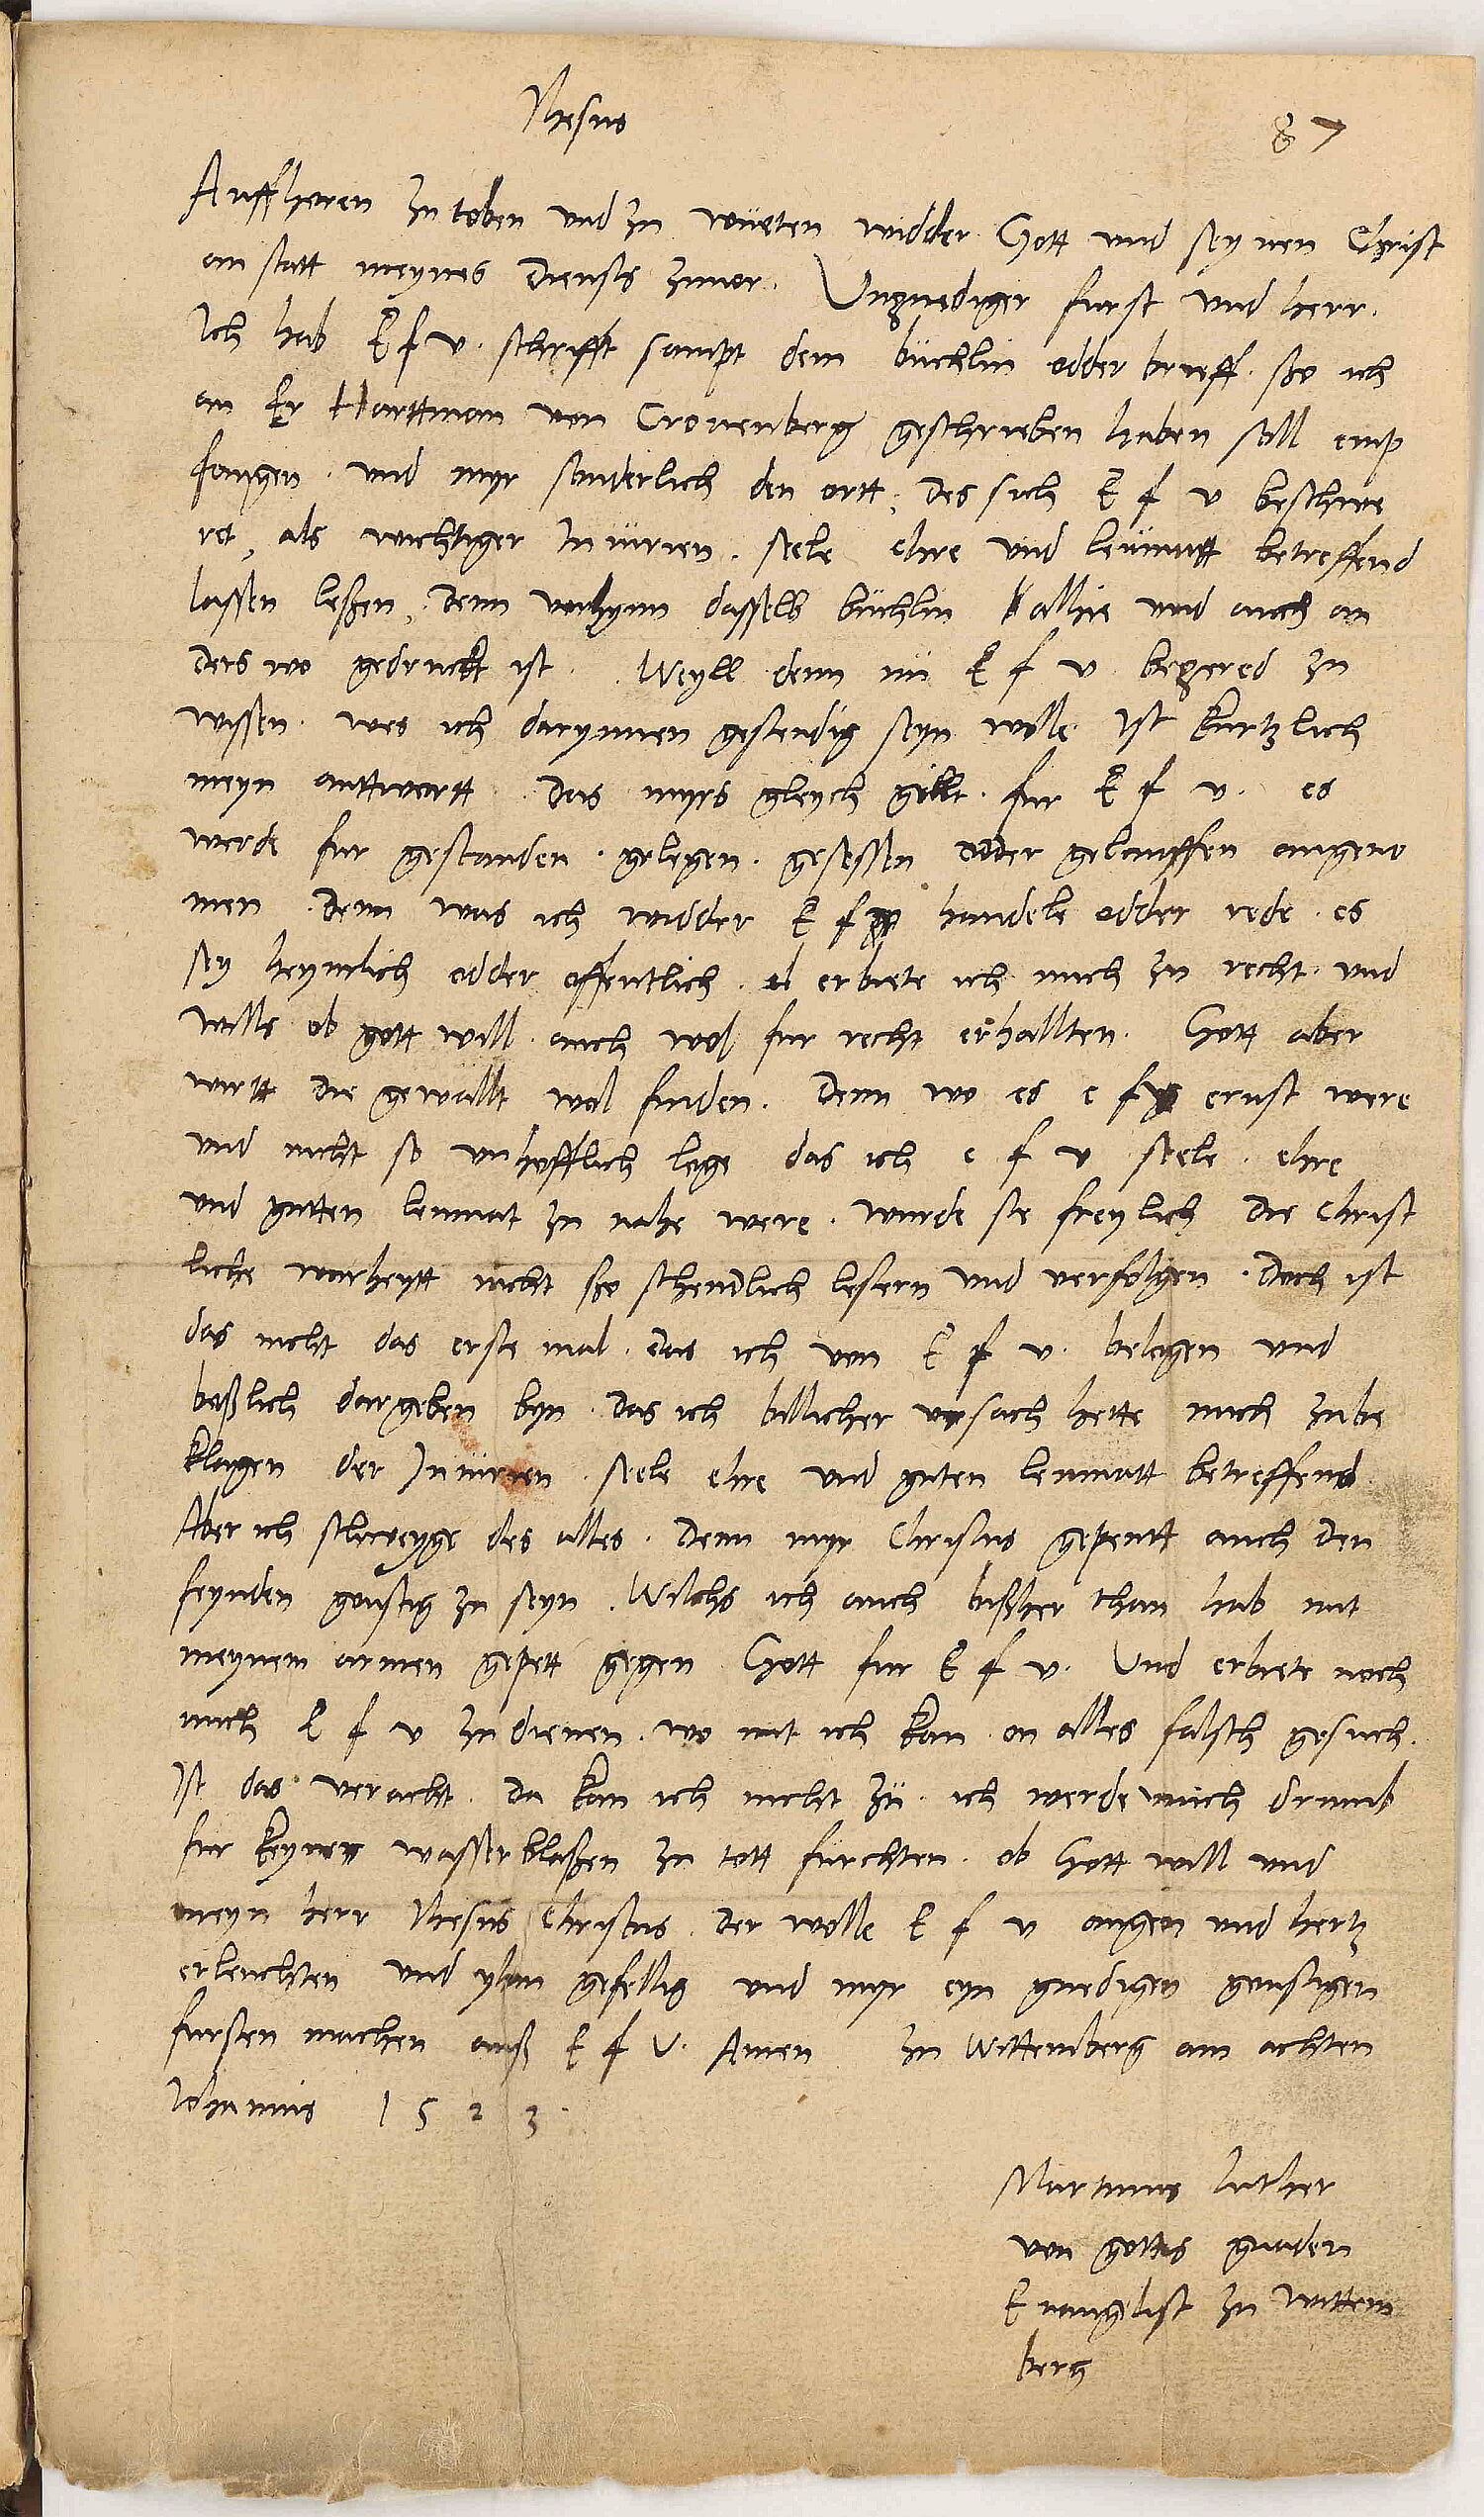 Jhesus
87
Auffhoren zu toben und zu wueten widder Gott und seynen Christ
an statt meynes diensts zuuor. Ungnediger furst und herr.
Ich hab E f u. schrifft sampt dem büchlin odder brieff. sso ich
an Er Harttman von Cronenberg geschrieben haben soll emp
fangen. und myr sonderlich den ortt, des sich E f u beschwe
ret, als wichtiger Iniurien. seele ehre und leumutt betreffend
lassen leßen, denn vorhynn dasselb büchlin allhie und auch an
ders wo gedruckt ist. Weyll denn nü E f u begered zu
wissen. wes ich darynnen gestendig seyn wolle Ist kurtzlich
meyn anttwortt. das myrs gleych gillt. fur E f u. es
werde fur gestanden. gelegen. gesessen odder gelauffen angeno
men. denn was ich widder E f handele odder rede. es
sey heymlich odder offentlich. erbiete ich mich zu recht. und
wills ob gott will. auch wol fur recht erhallten. Gott aber
wirtt die gewallt wol finden. denn wo es e f ernst were
und nicht so unhofflich loge das ich e f u seele. ehre
und gutten leumat zu nahe were. wurde sie freylich die Christ
liche warheytt nicht sso schendlich lestern und verfolgen. doch ist
das nicht das erste mal. das ich von E f u. belogen und
boßlich dargeben byn. das ich billicher ursach hette mich zu be
klagen der Iniurien. seele ehre und guten leumatt betreffend.
Aber ich schweyge des alles. denn myr Christus gepeutt auch den
feynden gonstig zu seyn. Wilchs ich auch bißher than hab mit
meynem armen gepett gegen Gott fur E f u. Und erbiete noch
mich E f u zu dienen. wo mit ich kan. on alles falsch gesuch.
Ist das veracht. da kan ich nicht zü. ich werde mich drumb
fur keyner wasserblaßen zu tott furchten. ob Gott will und
meyn herr Jhesus Christus. der wolle E f u augen und hertz
erleuchten und yhm gefellig und myr eyn gnedigen gonstigen
fursten machen auß E f U. Amen zu Wittemberg am achten
Johannis 1523.
Martinus Luther
von gottis gnaden
Euangelist zu Wittem
berg